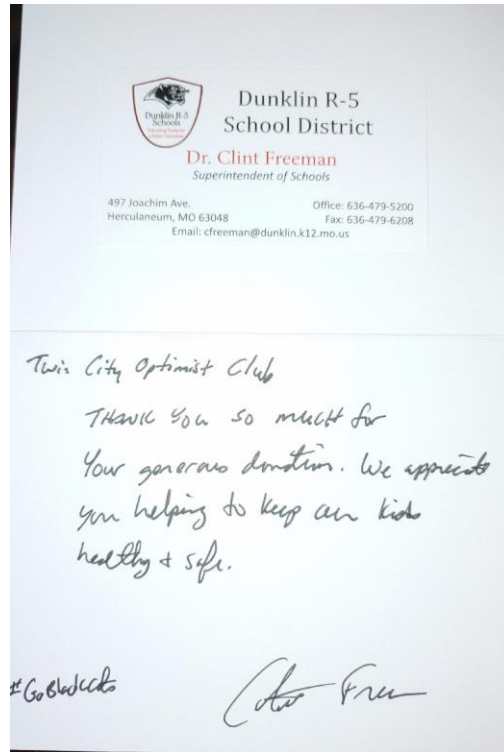 Dunklin R-5
Schools
Dunklin R-5
School District
Dr. Clint Freeman
Superintendent of Schools
497 Joachim Ave.
Office: 636-479-5200
Herculaneum, MO 63048
Fax: 636-479-6208
Email: cfreeman@dunklin.k12.mo.us
Twin City Optimist Club
THANK YOU so much for
Your generous donation. We appreciate
you helping to keep our kids
healthy & safe.
#GoBlackcats
Clint Freeman